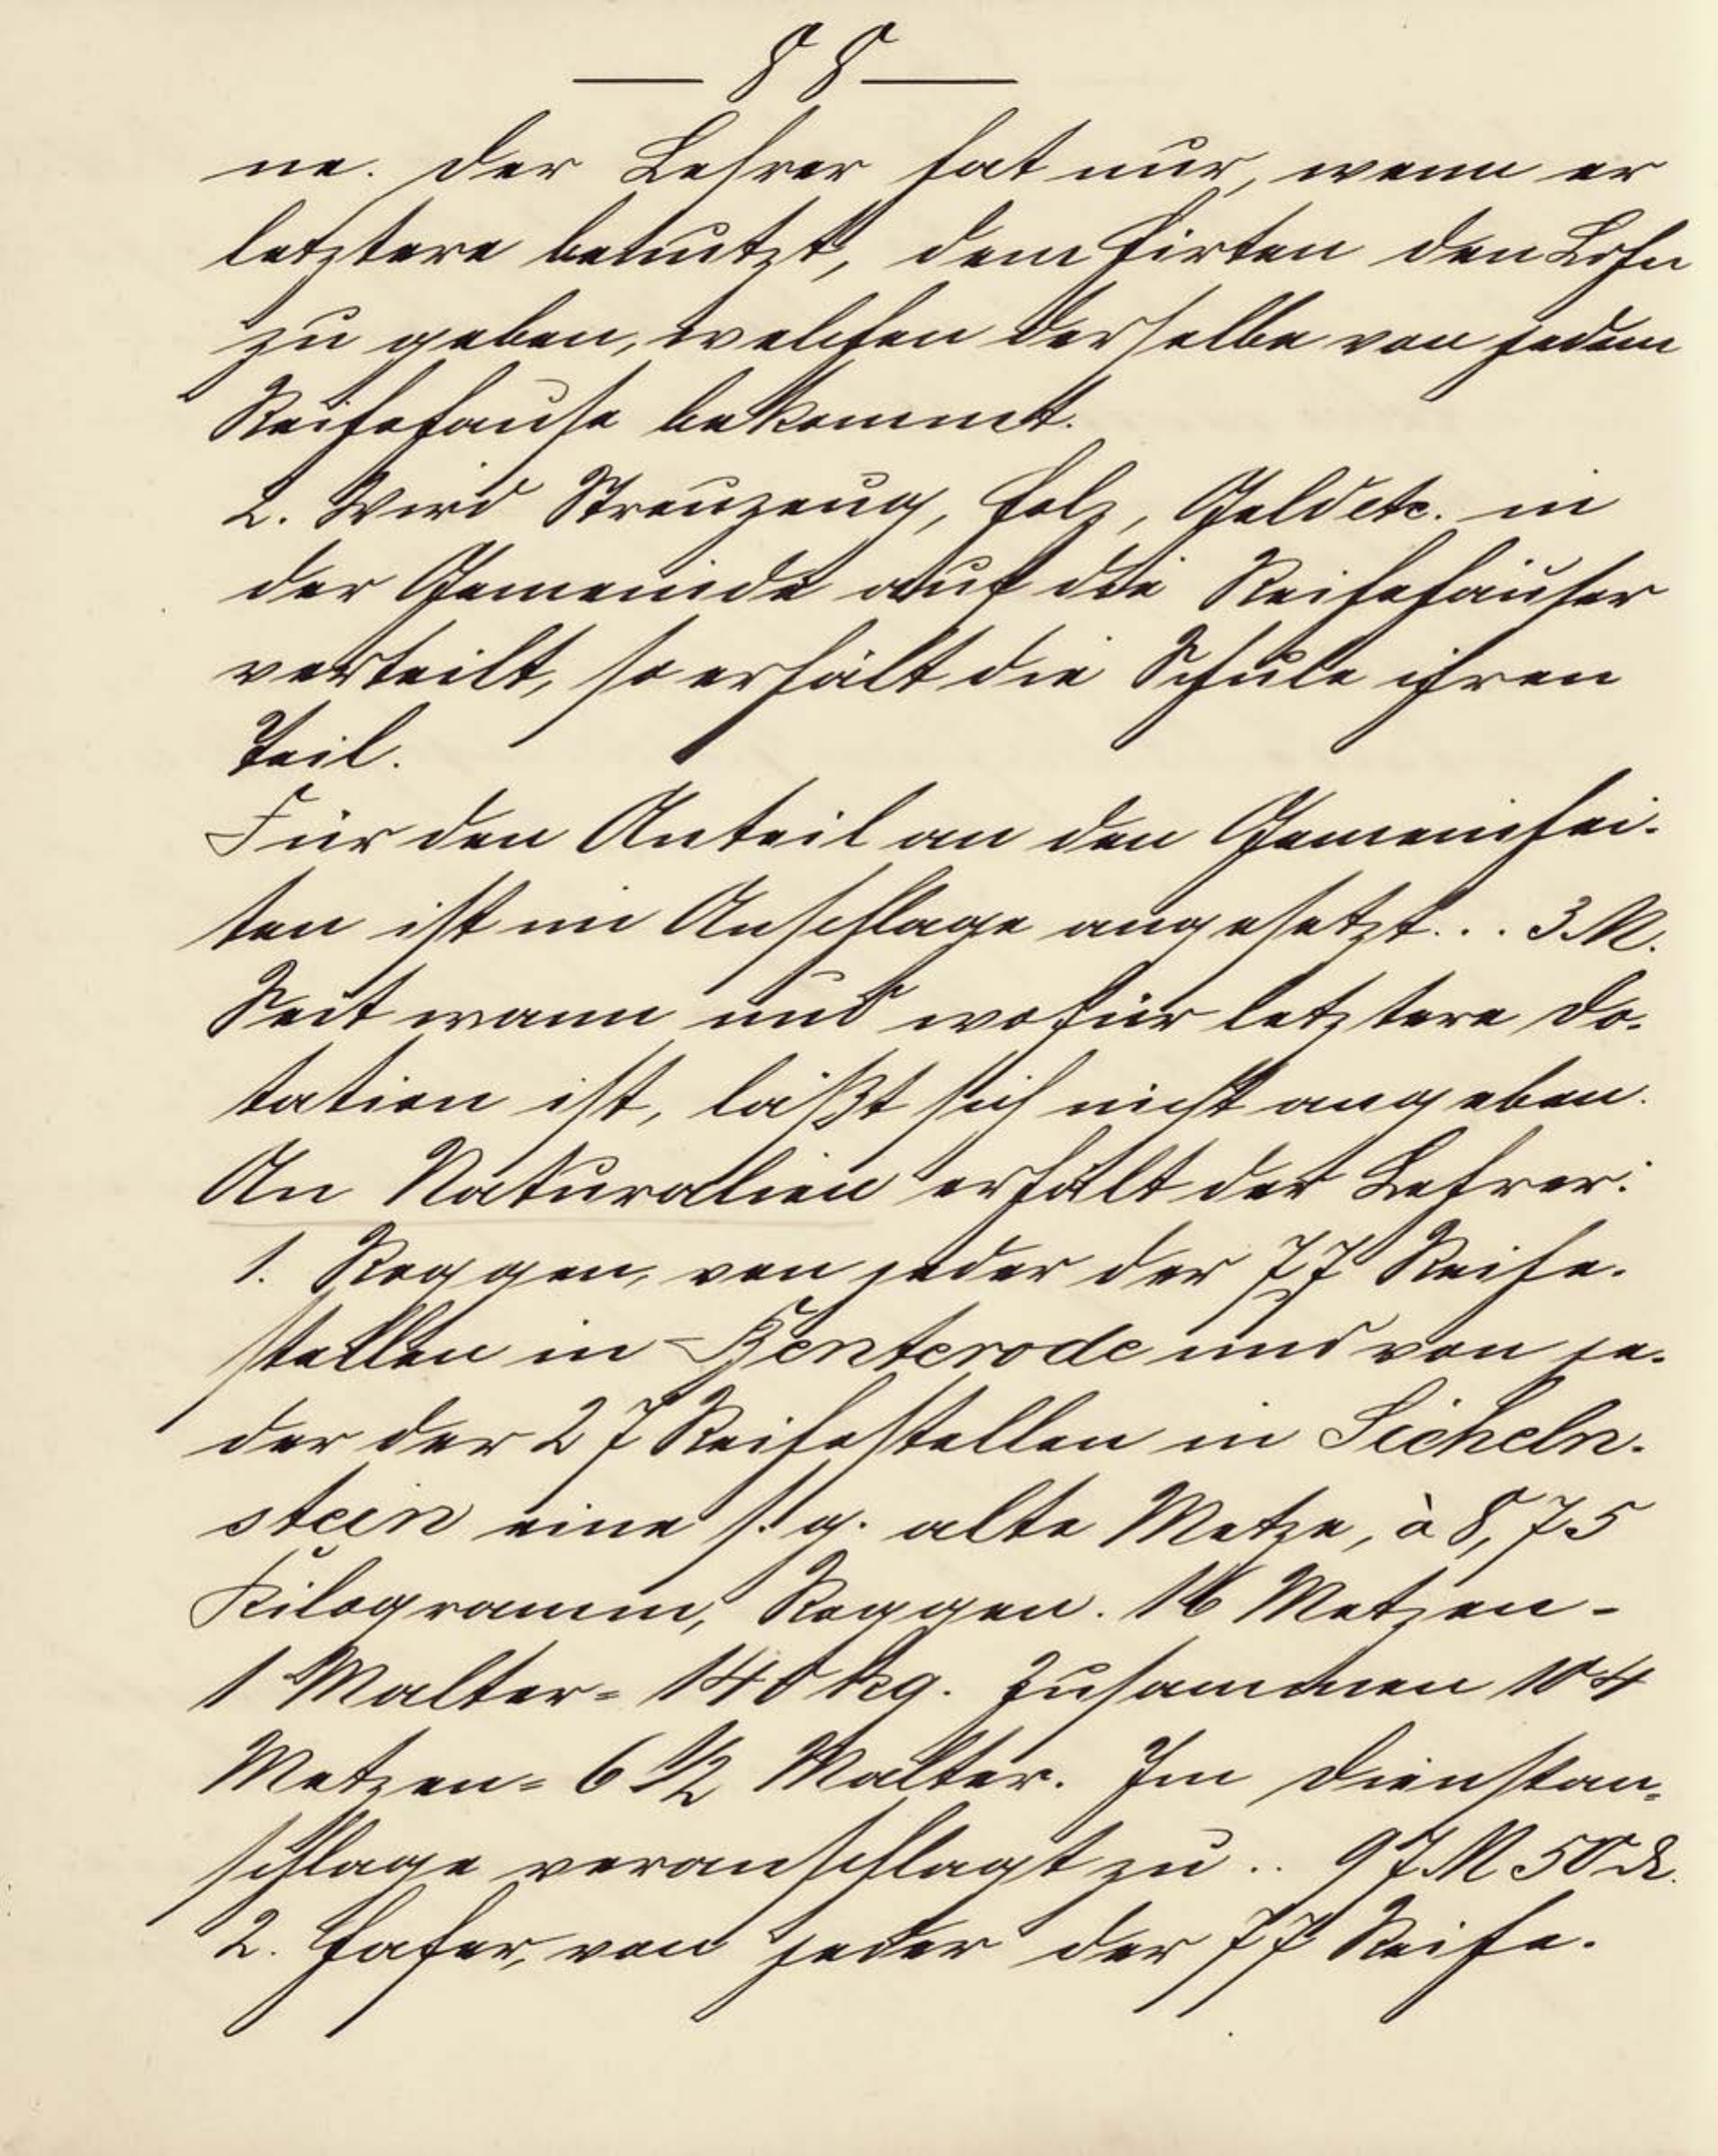 — 88 —
ne. Der Lehrer hat nur, wenn er
letztere benutzt, dem Hirten den Lohn
zu geben, welchen derselbe von jedem
Reihehause bekommt.
2. Wird Streuzeug, Holz, Geld etc. in
der Gemeinde auf die Reihehäuser
verteilt, so erhält die Schule ihren
Teil.
Für den Anteil an den Gemeinhei-
ten ist im Anschlage angesetzt... 3 M.
Seit wann und wofür letztere Do-
tation ist, läßt sich nicht angeben.
An Naturalien erhält der Lehrer:
1. Roggen, von jeder der 77 Reihe-
stellen in Benterode und von je-
der der 27 Reihestellen in Sicheln-
stein eine s. g. alte Metze, à 8,75
Kilogramm, Roggen. 16 Metzen =
1 Malter = 140 kg. Zusammen 104
Metzen = 6 1/2 Malter. Im Dienstan-
schlage veranschlagt zu .. 97 M 50 ₰.
2. Hafer, von jeder der 77 Reihe-